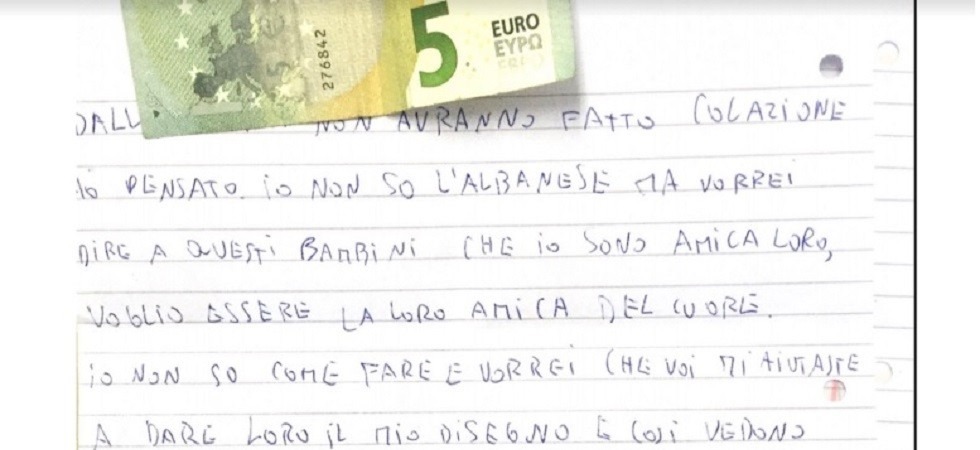 276842
5
EURO
ΕΥΡΩ
NON AVRANNO FATTO COLAZIONE
HO PENSATO. iO NON SO L'ALBANESE MA VORREI
DIRE A QUESTI BAMBINI CHE io SONO AMICA LORO,
VOGLIO ESSERE LA LORO AMICA DEL CUORE.
iO NON SO COME FARE E VORREI CHE VOi Mi AIUTASTE
A DARE LORO iL MIO DISEGNO E COSì VEDONO